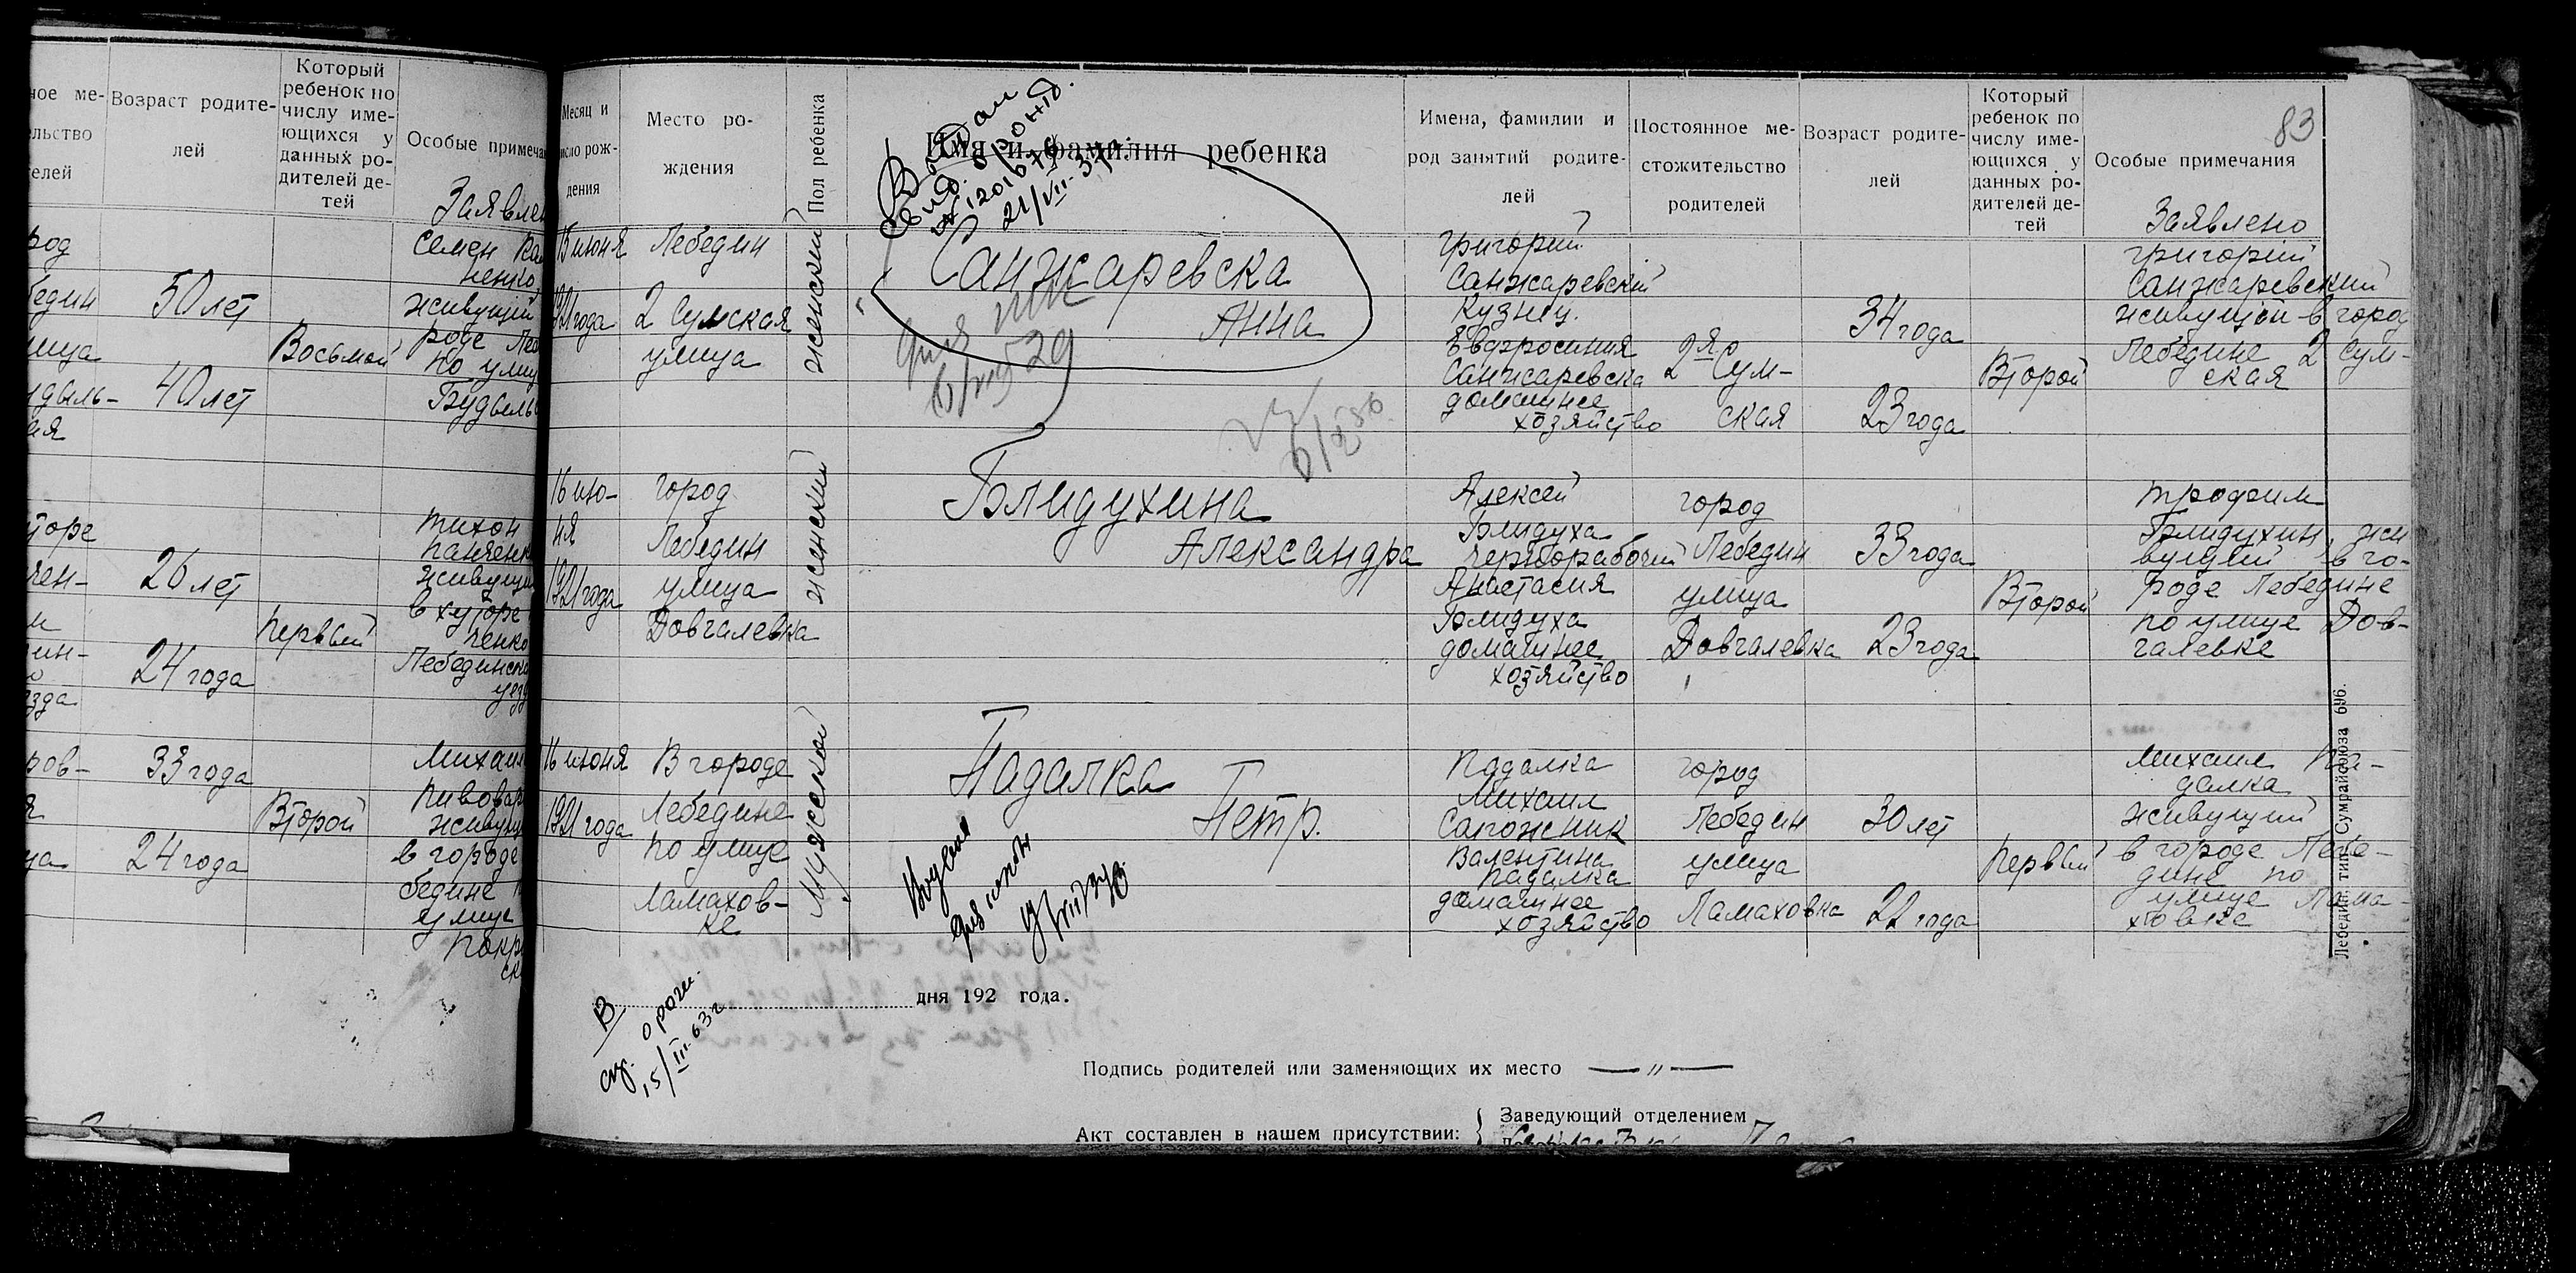 ное ме-
ельство
телей
Возраст родите-
лей
Который
ребенок по
числу име-
ющихся у
данных ро-
дителей де-
тей
Особые примеча
Заявлен
род
бедин
лица
50 лет
40 лет
Восьмой
Семен
ненко
живущий
роде Ле
по улиц
Будвель
торе
чен-
ин-
езда
26 лет
24 года
Первый
Тихон
живущи
в хуторе
ченко
Лебединск
уезд
ров-
33 года
24 года
Второй
Михаил
Пивовар
живущ
в городе
бедине
улице
Покр
ск
Месяц и
число рож-
дения
Место ро-
ждения
Пол ребенка
Имя и фамилия ребенка
Имена, фамилии и
род занятий родите-
лей
Постоянное ме-
стожительство
родителей
Возраст родите-
лей
Который
ребенок по
числу име-
ющихся у
данных ро-
дителей де-
тей
Особые примечания
83
Заявлено
21/VII-37
15 июня
1921 года
Лебедин
2 Сумская
улица
женский
Санжаревска
Анна
Григорий
Санжаревский
Кузнец.
Евдросиния
Санжаревска
домашнее
хозяйство
2-я
Сум-
ская
34 года
23 года
Второй
Григорий
Санжаревский
живущий в город
Лебедине 2 Сум-
ская
16 ию-
ня
1921 года
город
Лебедин
улица
Довгалевка
женский
Блидухина
Александра
Алексей
Блидуха
чернорабочий
Анастасия
Блидуха
домашнее
хозяйство
город
Лебедин
улица
Довгалевка
33 года
23 года
Второй
Трофим
Блидухин, жи
вущий в го-
роде Лебедине
по улице Дов-
галевке
16 июня
1921 года
В городе
Лебедине
по улице
Ламахов-
ке
Мужской
Падалка
Петр.
Падалка
Михаил
Сапожник
Валентина
Падалка
домашнее
хозяйство
город
Лебедин
улица
Ламаховка
30 лет
22 года
Первый
Михаил Па-
далка
живущий
в городе Лебе-
дине по
улице Лама-
ховке
В
о рож.
15/III-63 г
дня 192 года.
Подпись родителей или заменяющих их место — „ —
Акт составлен в нашем присутствии:
Заведующий отделением
Лебедин. тип. Сумрайсоюза 696.